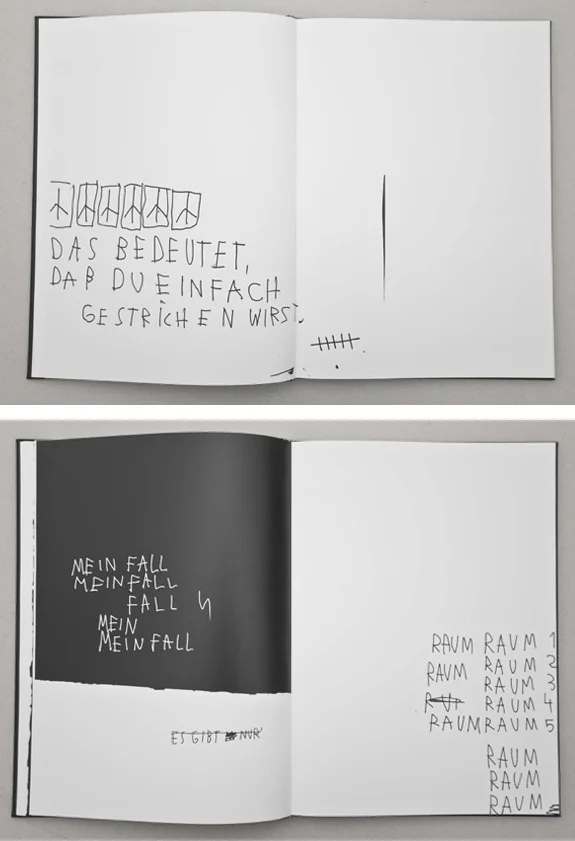 DAS BEDEUTET,
DAß DU EINFACH
GESTRICHEN WIRST.
MEIN FALL
MEINFALL
FALL
MEIN
MEIN FALL
ES GIBT NUR
RAUM RAUM 1
RAUM RAUM 2
RAUM 3
RAUM 4
RAUM RAUM 5
RAUM
RAUM
RAUM